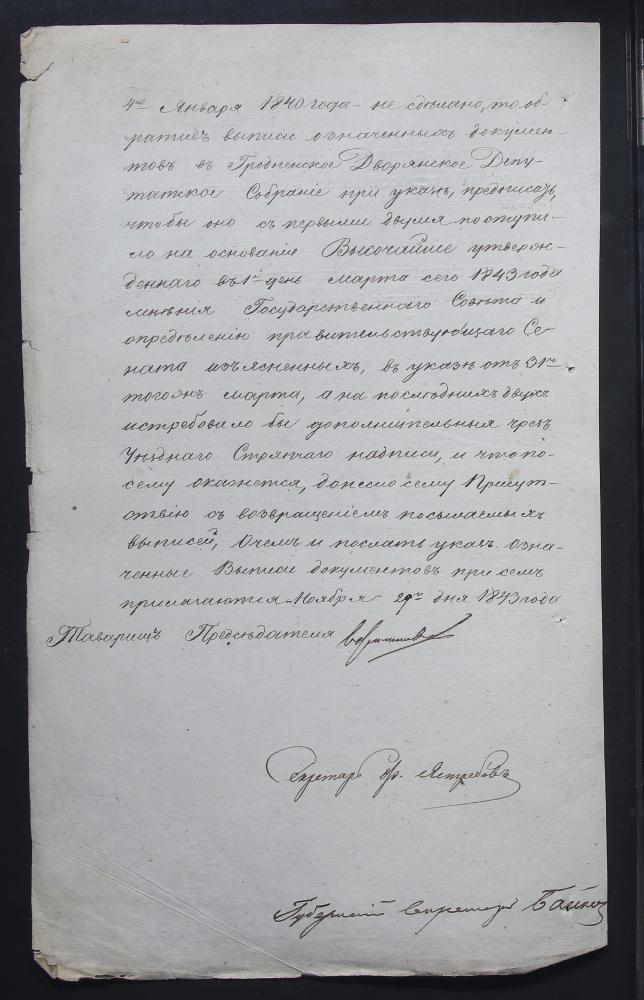 4го Января 1840 года не сдѣлано, то об-
ративъ выписи означенныхъ докумен-
товъ въ Гродненское Дворянское Депу-
татское Собраніе при указѣ, предписавъ,
чтобы оно съ первыми двумя поступи-
ло на основаніи Высочайше утверж-
деннаго въ 1й день марта сего 1843 года
мнѣнія Государственнаго Совѣта и
опредѣленію правительствующаго Се-
ната изъясненныхъ, въ указѣ отъ 31го
тогожъ марта, а на послѣднихъ двухъ
истребовало бы дополнительныя чрезъ
Уѣзднаго Стряпчаго надписи, и что по-
сему окажется, донесло сему Присут-
ствію съ возвращеніемъ посылаемыхъ
выписей, О чемъ и послать указъ. Озна-
ченные Выписи документовъ при семъ
прилагаются. Ноября 29го дня 1843 года
Таварищъ Предсѣдателя
Секретарь Ястребовъ
Губернскій Секретарь